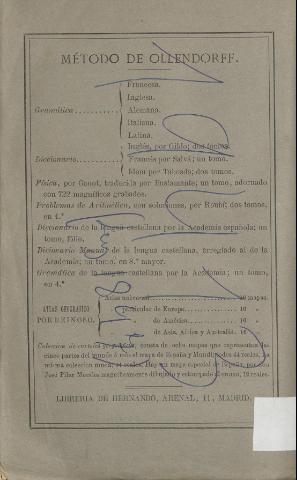 MÉTODO DE OLLENDORFF.
Francesa.
Inglesa.
Gramática
Alemana.
Italiana.
Latina.
Inglés, por Gildo; dos tomos.
Diccionario
Francés por Salvá; un tomo.
Idem por Taboada; dos tomos.
Física, por Ganot, traducida por Bustamante; un tomo, adornado
con 722 magníficos grabados.
Problemas de Aritmética, con soluciones, por Roubí; dos tomos,
en 4.º
Diccionario de la lengua castellana por la Academia española; un
tomo, fólio.
Diccionario Manual de la lengua castellana, arreglado al de la
Academia; un tomo, en 8.º mayor.
Gramática de la lengua castellana por la Academia; un tomo,
en 4.º
Atlas universal 20 mapas.
ATLAS GEOGRÁFICO
particular de Europa. 16 »
POR REINOSO.
de América. 10 »
de Asia, África y Australia. 16 »
consta de ocho mapas que representan las
cinco partes del mundo
mapa de España y Mundi
Hay un mapa especial de España, por don
José Pilar Morales magníficamente
LIBRERIA DE HERNANDO, ARENAL, 11, MADRID.